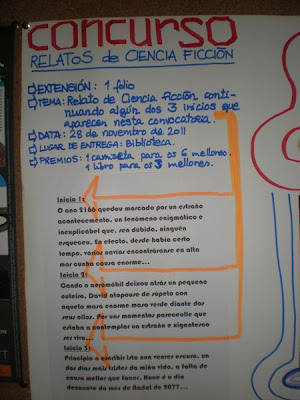 CONCURSO
RELATOS de CIENCIA FICCIÓN
EXTENSIÓN: 1 folio
TEMA: Relato de Ciencia Ficción conti-
nuando algún dos 3 inicios que
aparecen nesta convocatoria.
DATA: 28 de novembro de 2011
LUGAR DE ENTREGA: Biblioteca.
PREMIOS: 1 camiseta para os 6 mellores.
1 libro para os 3 mellores.
Inicio 1:
O ano 2166 quedou marcado por un estraño
acontecemento, un fenómeno enigmático e
inexplicábel que, sen dúbida, ninguén
esqueceu. En efecto, desde había certo
tempo, varios navíos encontráronse en alta
mar cunha cousa enorme...
Inicio 2:
Cando o automóbil deixou atrás un pequeno
outeiro, David atopouse de súpeto con
aquela masa enorme masa verde diante dos
seus ollos. Por uns momentos pareceulle que
estaba a contemplar un estraño e xigantesco
ser vivo...
Inicio 3:
Principio a escribir isto nun venres escuro, un
dos días máis tristes da miña vida, a falta de
cousa mellor que facer. Hoxe é o día
despois do mes de Nadal de 2077...